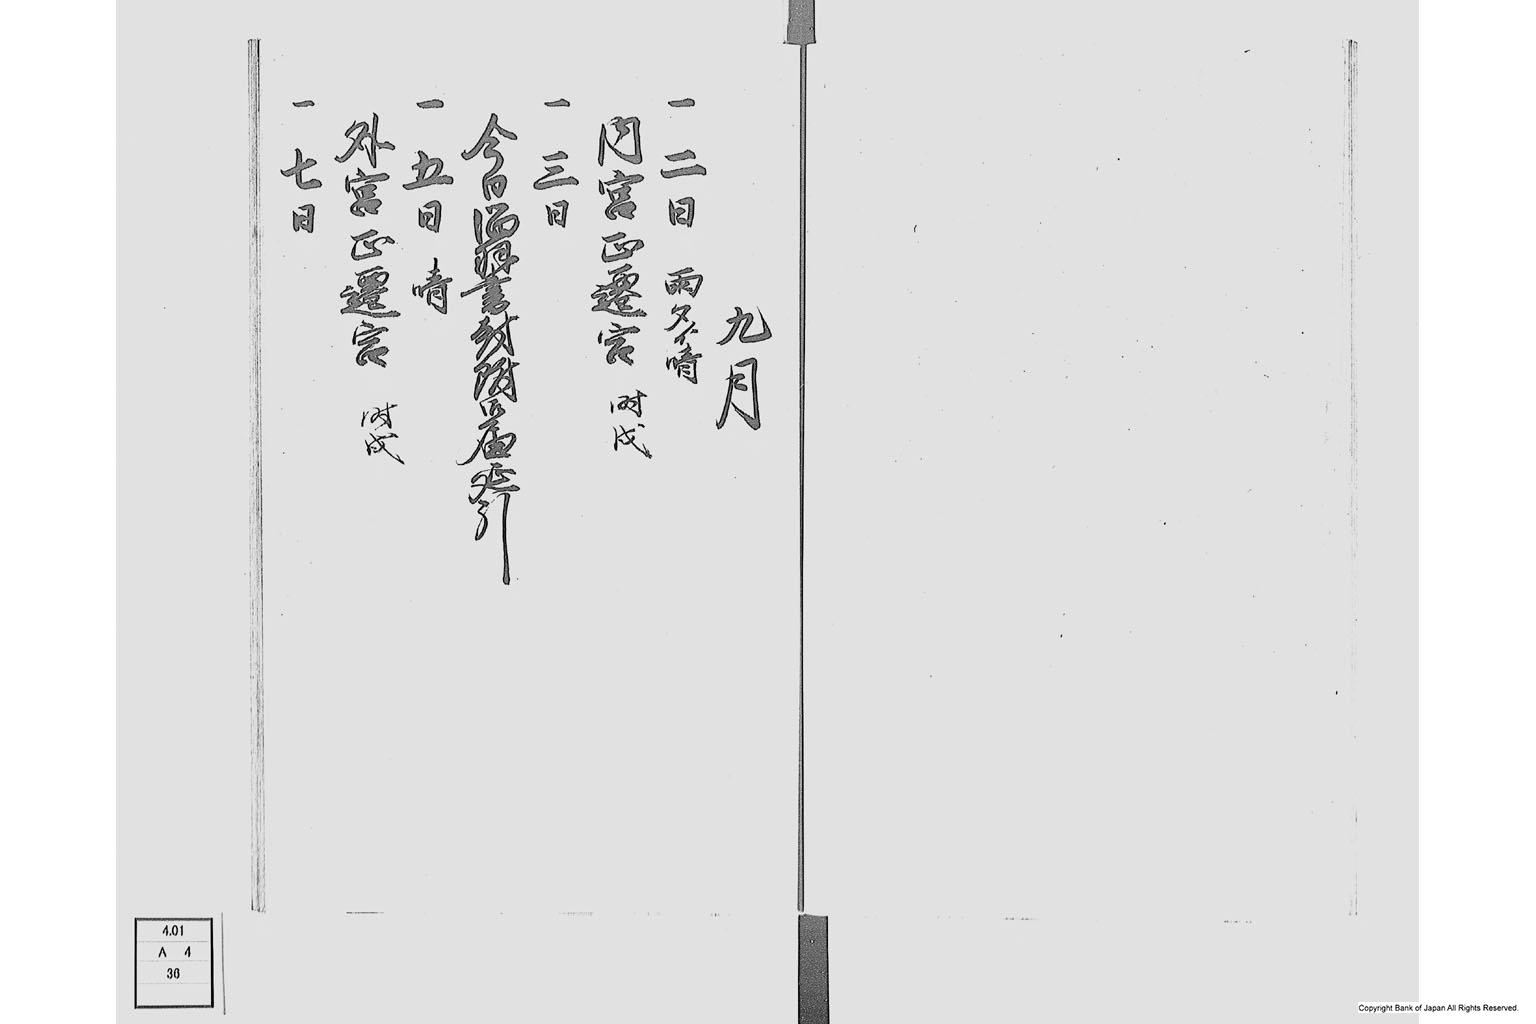 九月
一 二日 雨夕ゟ晴
内宮正遷宮 時戌
一 三日
今日 書付 延引
一 五日 晴
外宮正遷宮 時戌
一 七日
4.01
A 4
36
Copyright Bank of Japan All Rights Reserved.